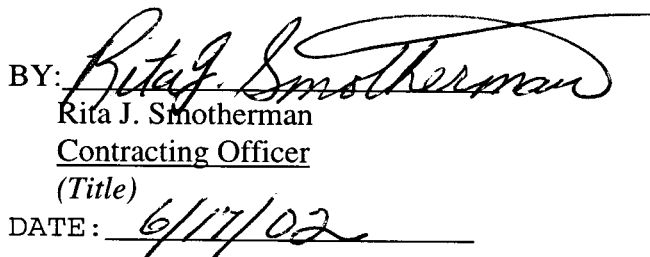 BY: Rita J. Smotherman
Rita J. Smotherman
Contracting Officer
(Title)
DATE: 6/17/02